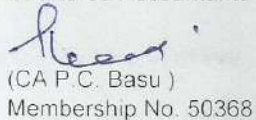 (CA P.C. Basu )
Membership No. 50368